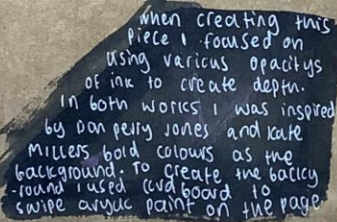 when creating this
piece I focused on
using various opacitys
of ink to create depth.
In both works I was inspired
by Don perry Jones and Kate
Millers bold colours as the
background. To create the backg
-round I used cardboard to
swipe acrylic paint on the page